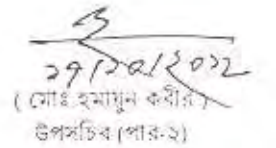 ২৭/১০/২০১২
( মোঃ হুমায়ুন কবীর )
উপসচিব (পার-২)